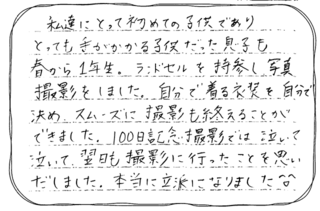 私達にとって初めての子供であり
とっても手がかかる子供だった息子も
春から1年生。ランドセルを持参し写真
撮影をしました。自分で着る衣装を自分で
決め、スムーズに撮影も終えることが
できました。100日記念撮影では泣いて
泣いて、翌日も撮影に行ったことを思い
だしました。本当に立派になりました^^